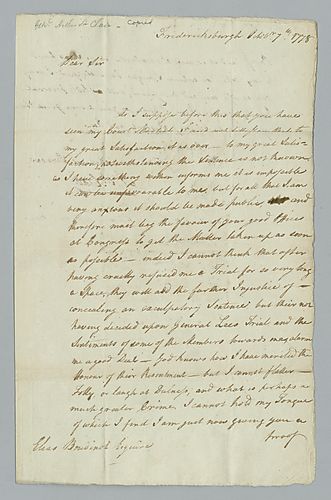 Genl. Arthur St. Clair - Copied
Fredericksburgh Octobr. 7th. 1778
Dear Sir
As I suppose before this that you have
seen my Court Martial I need not tell you that to
my great Satisfaction it is over - to my great Satis-
faction, notwithstanding the Sentence is not known
as I have something within informs me it is impossible
it can be unfavourable to me, but for all that I am
very anxious it should be made publick and
therefore must beg the favour of your good Offices
at Congress to get the Matter taken up as soon
as possible - indeed I cannot think that after
having cruelly refused me a Trial for so very long
a Space, they will add the further Injustice of -
concealing an exculpatory Sentence but their not
having decided upon General Lees Trial and the
Sentiments of some of the Members towards me, alarm
me a good deal - God knows how I have merited the
Honour of their Resentment - but I cannot flatter
Folly, or laugh at Dulness, and what is perhaps a
much greater Crime I cannot hold my Tongue
of which I find I am just now giving you a
proof
Elias Boudinot Esquire